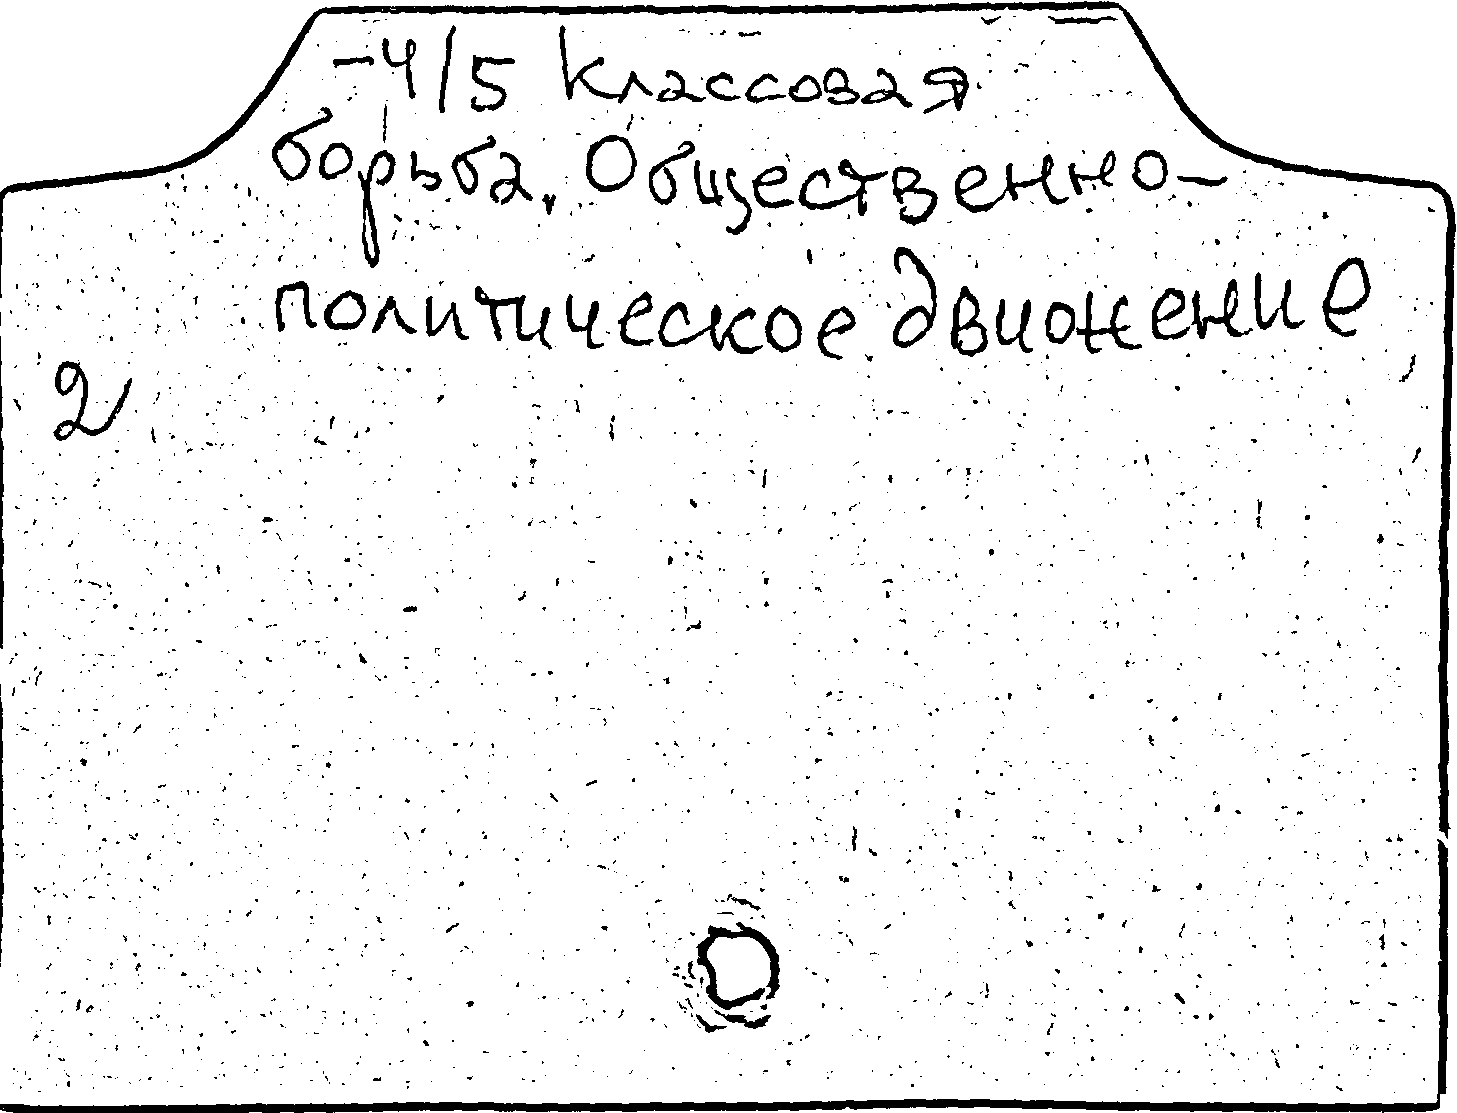 -4/5 Классовая
борьба. Общественно-
политическое движение
2